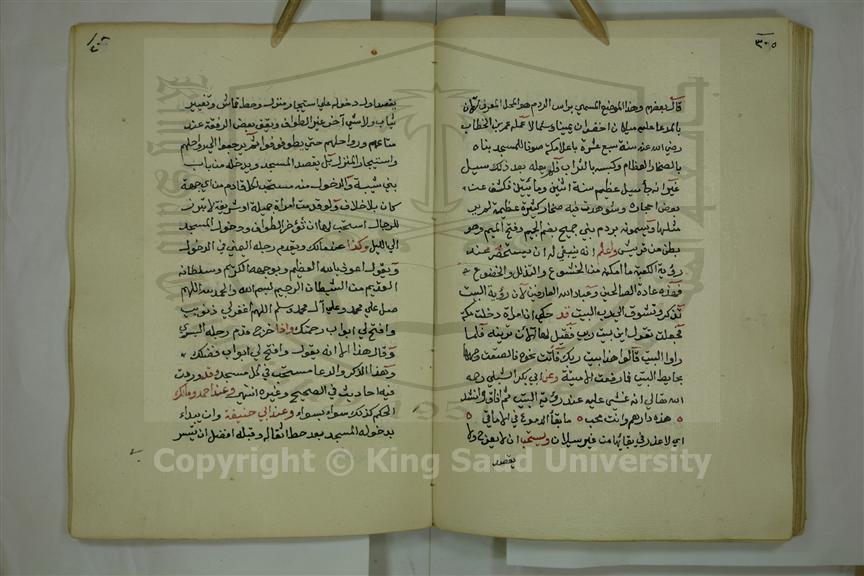 ٣٠٥
قال بعضهم وهذا الموضع المسمى برأس الردم هو المحل المعروف الآن
بالمدعا عليه ميلان اخضران يمينا وشمالا عمله عمر بن الخطاب
رضي الله عنه سنة سبع عشرة باعلا مكة صونا للمسجد بناه
بالضفار العظام وكبسه بالتراب فلم يعله بعد ذلك سيل
غير انه جا سيل عظيم سنة اثنين ومايتين فكشف عن
بعض احجاره وشوهدت فيه صخار كثيرة عظيمة لم ير
مثلها ويسمونه بردم بني جميح بضم الجيم وفتح الميم وهو
بطن من قريش واعلم انه ينبغي له ان يستحضر عند
رؤية الكعبة ما امكنه من الخشوع والتذلل والخضوع
فهذه عادة الصالحين وعباد الله العارفين لان رؤية البيت
تذكر وتشوق الى رب البيت قد حكي ان امراة دخلت مكة
فجعلت تقول اين بيت ربي فقيل لها الان ترينه فلما
راوا البيت قالوا هذا بيت ربك فاتت نحوه فالصقت جبينها
بحايط البيت فما رفعت الا ميتة وعن ابي بكر الشبلي رحمه
الله تعالى انه غشي عليه عند رؤية البيت ثم افاق وانشد
هذه دارهم وانت محب ما بقا الدموع في الاماقي
اي لا عذر في بقايها من غير سيلان ويستحب ان لا يعرج ولا
يقصد
يقصد اول دخوله على استيجار منزل وحط قماش وتغيير
ثياب ولا شي آخر غير الطواف ويقف بعض الرفقة عند
متاعهم ورواحلهم حتى يطوفوا ثم يرجعوا الى رواحلهم
واستيجار المنزل بل يقصد المسجد ويدخله من باب
بني شيبة والدخول منه مستحب لكل قادم من اي جهة
كان بلا خلاف ولو قدمت امراة جميلة او شريفة لا تبرز
للرجال استحب لها ان تؤخر الطواف ودخول المسجد
الى الليل وكذا عند مالك ويقدم رجله اليمنى في الدخول
ويقول اعوذ بالله العظيم وبوجهه الكريم وسلطانه
القديم من الشيطان الرجيم بسم الله والحمد لله اللهم
صل على محمد وعلى آل محمد وسلم اللهم اغفر لي ذنوبي
وافتح لي ابواب رحمتك واذا خرج قدم رجله اليسرى
وقال هذا الا انه يقول وافتح لي ابواب فضلك
وهذا الذكر والدعا مستحب في كل مسجد قد وردت
فيه احاديث في الصحيح وغيره انتهى وعند احمد ومالك
الحكم كذلك سواء بسواء وعند ابي حنيفة وان يبداء
بدخوله المسجد بعد حط اثقاله وقبله افضل ان تيسر
Copyright © King Saud University